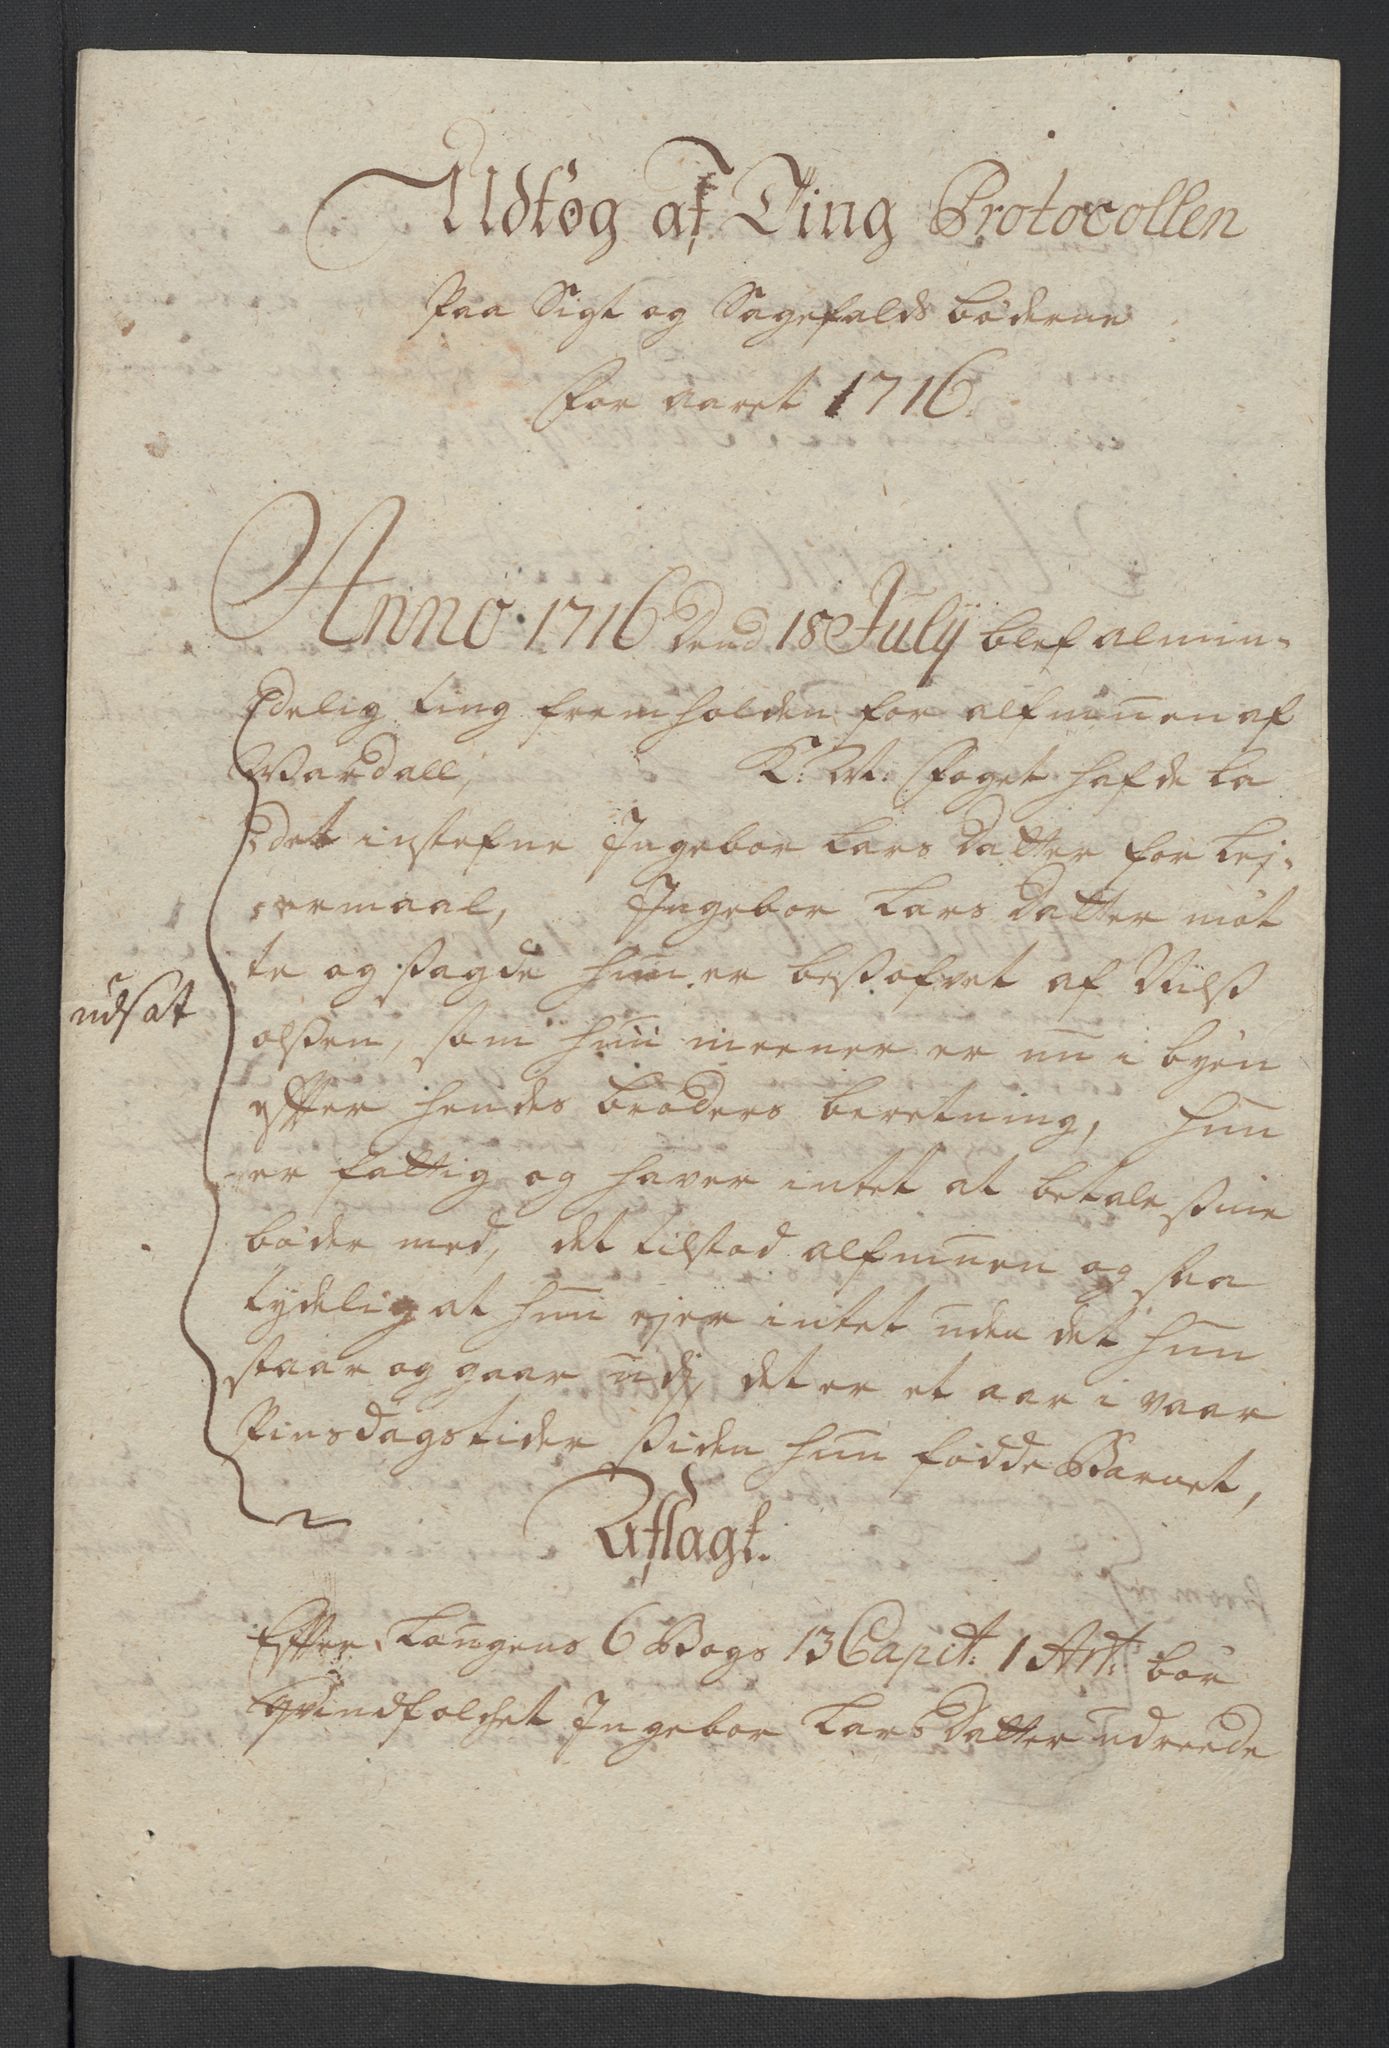 Udtog af Ting Protocollen
Paa Sigt og Sagefalds bøderne
for aaret 1716.
Anno 1716 Dend 18 Julij blef almin-
delig ting fremholden for alfmuen af
Wardall, K: M: Foget hafde La
det instefne Ingebor Lars Datter for Lej-
ermaal, Ingebor Lars Datter møt
te og sagde hun er besofvet af Nilss
olssen, som hun meener er nu i byen
effter hendes broders beretning, hun
er fattig og haver intet at betale sine
bøder med, det tilstod alfmuen og saa
tydelig at hun ejer intet uden det hun
staar og gaar udj, det er et aar i vaar
Pinsdagstider siden hun fødde Barnet,
udsat
Afsagt.
Effter Lougens 6 Bogs 13 Capit: 1 Art: bør
qvindfolchet Ingebor Lars Datter udreede